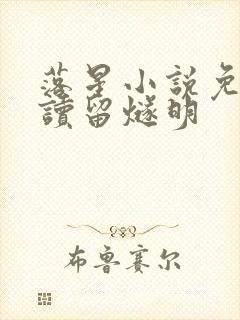 落星小説免
讀留燧明
布魯賽尔